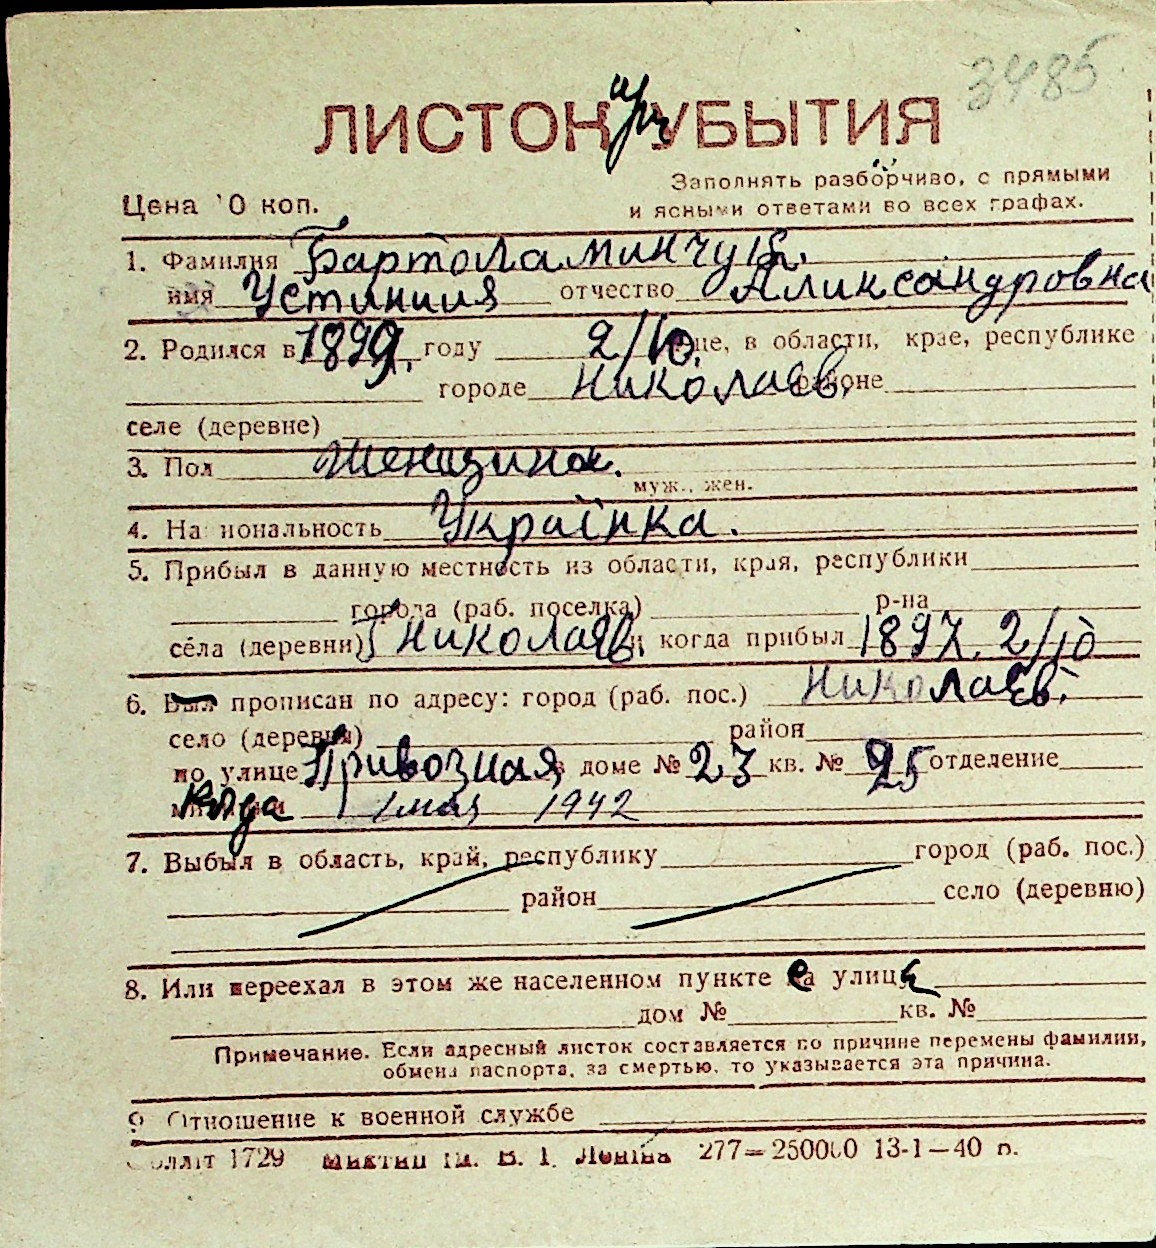 3485
ЛИСТОК УБЫТИЯ
Цена 10 коп.
Заполнять разборчиво, с прямыми
и ясными ответами во всех графах.
1. Фамилия Бартоламинчук.
имя Устиния отчество Аликсандровна
2. Родился в 1899. году 2/10. це, в области, крае, республике
городе Николаев. районе
селе (деревне)
3. Пол Женщина.
муж., жен.
4. Национальность Українка.
5. Прибыл в данную местность из области, края, республики
города (раб. поселка) р-на
села (деревни) Г Николаев и когда прибыл 1897. 2/10
6. Был прописан по адресу: город (раб. пос.) Николаев.
село (деревня) район
по улице Привозная в доме № 23 кв. № 25 отделение
милиции Когда 1 мая 1942
7. Выбыл в область, край, республику город (раб. пос.)
район село (деревню)
8. Или переехал в этом же населенном пункте на улице
дом № кв. №
Примечание. Если адресный листок составляется по причине перемены фамилии,
обмена паспорта, за смертью, то указывается эта причина.
9. Отношение к военной службе
1729 ім. В. І. Леніна 277—250000 13-1—40 п.